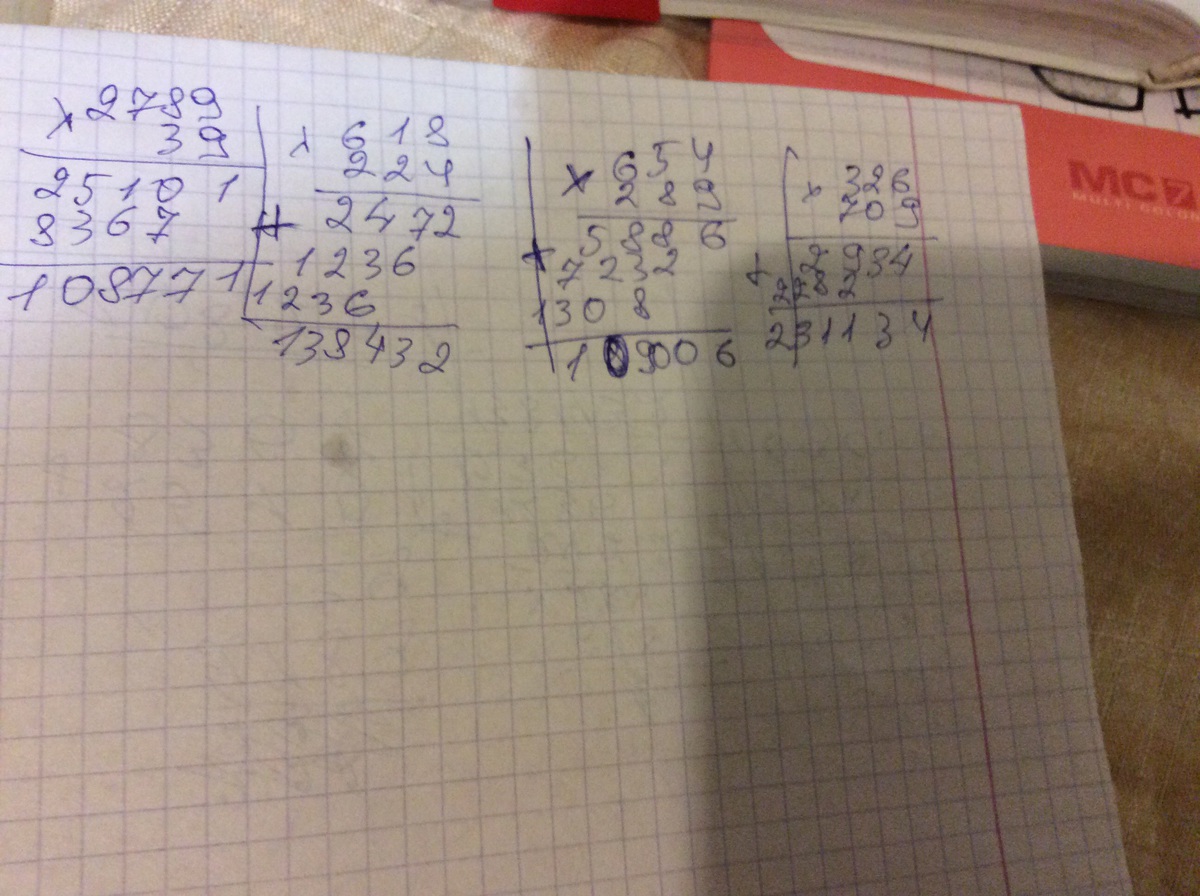 × 2789
39
25101
8367
108771
× 618
224
+ 2472
1236
1236
138432
× 654
289
+ 5886
7232
1308
189006
× 326
709
+ 2934
2282
231134
MC7